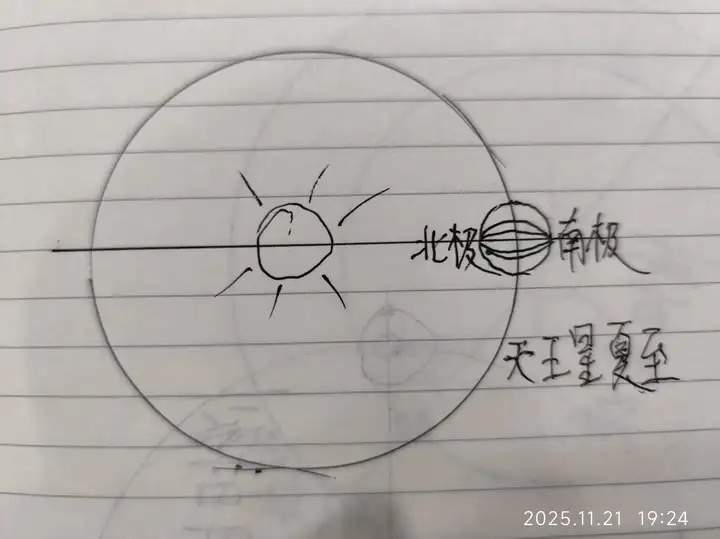 北极 南极
天王星夏至
2025.11.21 19:24